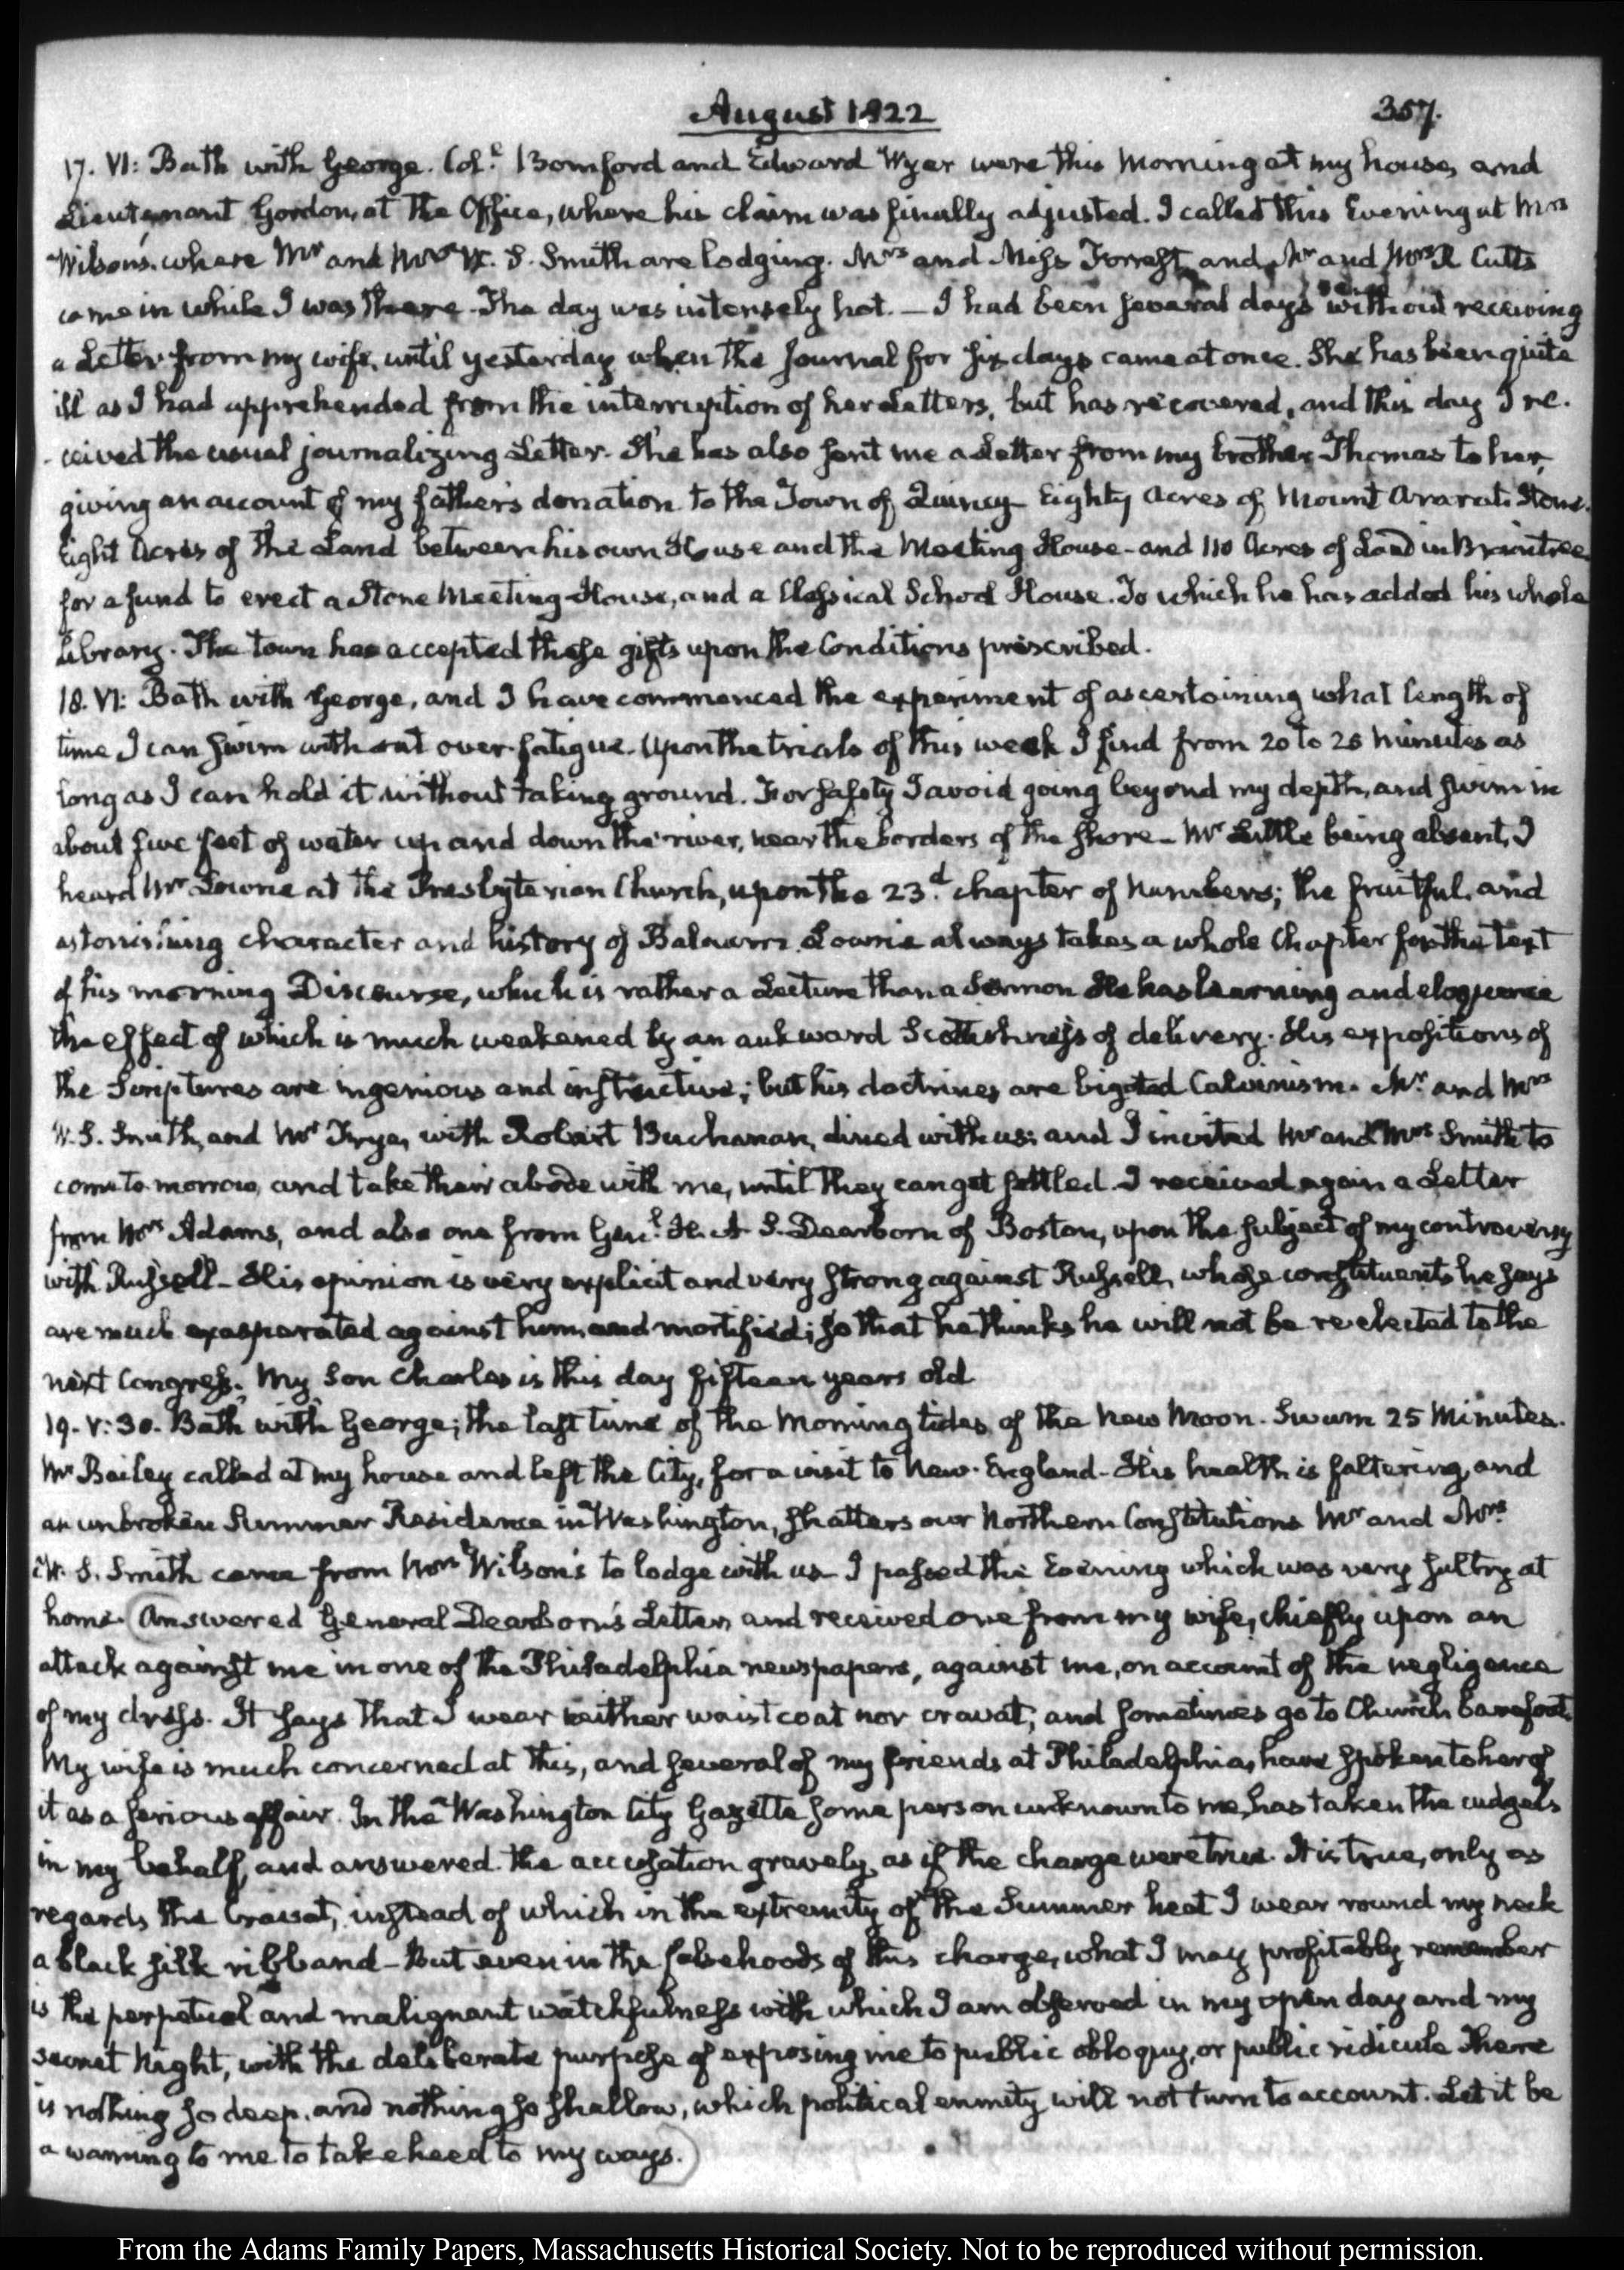 August 1822
357.
17. VI: Bath with George. Col.l Bomford and Edward Wyer were this Morning at my house, and
Lieutenant Gordon, at the Office, where his claim was finally adjusted. I called this Evening at Mrs
Wilson's, where Mr and Mrs W. S. Smith are lodging. Mrs and Miss Forrest, and Mr and Mrs R Cutts
came in while I was there. The day was intensely hot. — I had been several days without receiving
a Letter from my wife, until yesterday when the Journal for six days came at once. She has been quite
ill as I had apprehended from the interruption of her Letters, but has recovered, and this day I re-
-ceived the usual journalizing Letter. She has also sent me a Letter from my brother Thomas to her,
giving an account of my father's donation to the Town of Quincy Eighty Acres of Mount Ararat Stone.
Eight Acres of the Land between his own House and the Meeting House - and 110 Acres of Land in Braintree
for a fund to erect a Stone Meeting-House, and a Classical School House. To which he has added his whole
Library. The town has accepted these gifts upon the Conditions prescribed.
18. VI: Bath with George, and I have commenced the experiment of ascertaining what length of
time I can swim without over-fatigue. Upon the trials of this week I find from 20 to 25 minutes as
long as I can hold it without taking ground. For safety I avoid going beyond my depth, and swim in
about five feet of water up and down the river, near the borders of the shore - Mr Little being absent, I
heard Mr Lowrie at the Presbyterian Church, upon the 23.d chapter of Numbers; the fruitful and
astonishing character and history of Balaam. Lowrie always takes a whole Chapter for the text
of his morning Discourse, which is rather a Lecture than a Sermon He has learning and eloquence
the effect of which is much weakened by an aukward Scottishness of delivery. His expositions of
the Scriptures are ingenious and instructive; but his doctrines are bigoted Calvinism. Mr. and Mrs
W. S. Smith, and Mr Frye, with Robert Buchanan, dined with us; and I invited Mr and Mrs Smith to
come to-morrow, and take their abode with me, until they can get settled. I received again a Letter
from Mrs Adams, and also one from Gen.l H. A S. Dearborn of Boston, upon the subject of my controversy
with Russell - His opinion is very explicit and very strong against Russell, whose constituents he says
are much exasperated against him, and mortified; so that he thinks he will not be re-elected to the
next Congress. My Son Charles is this day fifteen years old
19. V:30. Bath with George; the last time of the Morning tides, of the New Moon. Swum 25 Minutes.
Mr Bailey called at my house and left the City, for a visit to New-England - His health is faltering, and
an unbroken Summer Residence in Washington, shatters our Northern Constitutions Mr and Mrs
W. S. Smith came from Mrs Wilson's to lodge with us - I passed the Evening which was very sultry at
home. Answered General Dearborn's Letter, and received one from my wife, chiefly upon an
attack against me in one of the Philadelphia newspapers, against me, on account of the negligence
of my dress. It says that I wear neither waistcoat nor cravat, and sometimes go to Church barefoot.
My wife is much concerned at this, and several of my friends at Philadelphia, have spoken to her of
it as a serious affair. In the Washington City Gazette some person unknown to me, has taken the cudgels
in my behalf, and answered the accusation gravely, as if the charge were true. It is true, only as
regards the Cravat, instead of which in the extremity of the Summer heat I wear round my neck
a black silk ribband - But even in the falsehoods of this charge, what I may profitably remember
is the perpetual and malignant watchfulness with which I am observed in my open day and my
secret Night, with the deliberate purpose of exposing me to public obloquy, or public ridicule There
is nothing so deep, and nothing so shallow, which political enmity will not turn to account. Let it be
a warning to me to take heed to my ways.
From the Adams Family Papers, Massachusetts Historical Society. Not to be reproduced without permission.